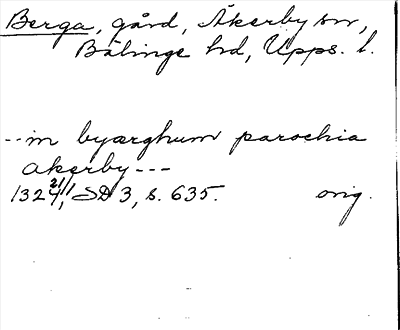 Berga, gård, Åkerby sn,
Bälinge hd, Upps. l.
--in byærghum parochia
akerby---
1324 21/1, SD 3, s. 635. orig.